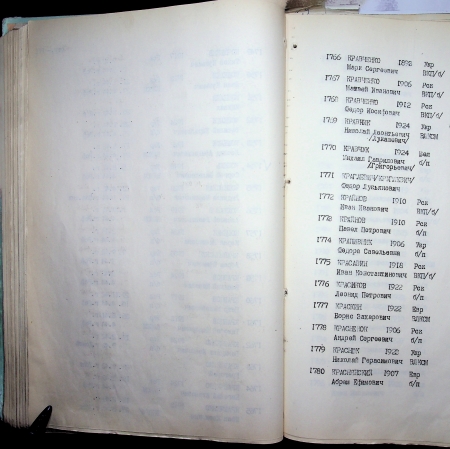 1766 КРАВЧЕНКО 1898 Укр
Марк Сергеевич ВКП/б/
1767 КРАВЧЕНКО 1905 Рск
Матвей Иванович ВКП/б/
1768 КРАВЧЕНКО 1912 Рск
Федор Иосифович ВКП/б/
1769 КРАВЧИК 1924 Укр
Николай Леонтьевич ВЛКСМ
/Лукашевич/
1770 1924
Михаил Гаврилович б/п
/Григорьевич/
1771
Федор Лукьянович
1772 КРАЙНОВ 1910 Рск
Иван Иванович ВКП/б/
1773 КРАЙНОВ 1910 Рск
Павел Петрович б/п
1774 КРАПИВНИК 1906 Укр
Федора Савельевна б/п
1775 КРАСАВИН 1918 Рск
Иван Константинович ВКП/б/
1776 КРАСИКОВ 1922 Рск
Леонид Петрович б/п
1777 КРАСКИН 1922 Евр
Борис Захарович ВЛКСМ
1778 КРАСНЕНОК 1906 Рск
Андрей Сергеевич б/п
1779 Укр
Николай Герасимович ВЛКСМ
1780 КРАСНИНСКИЙ 1907 Евр
Абрам Ефимович б/п